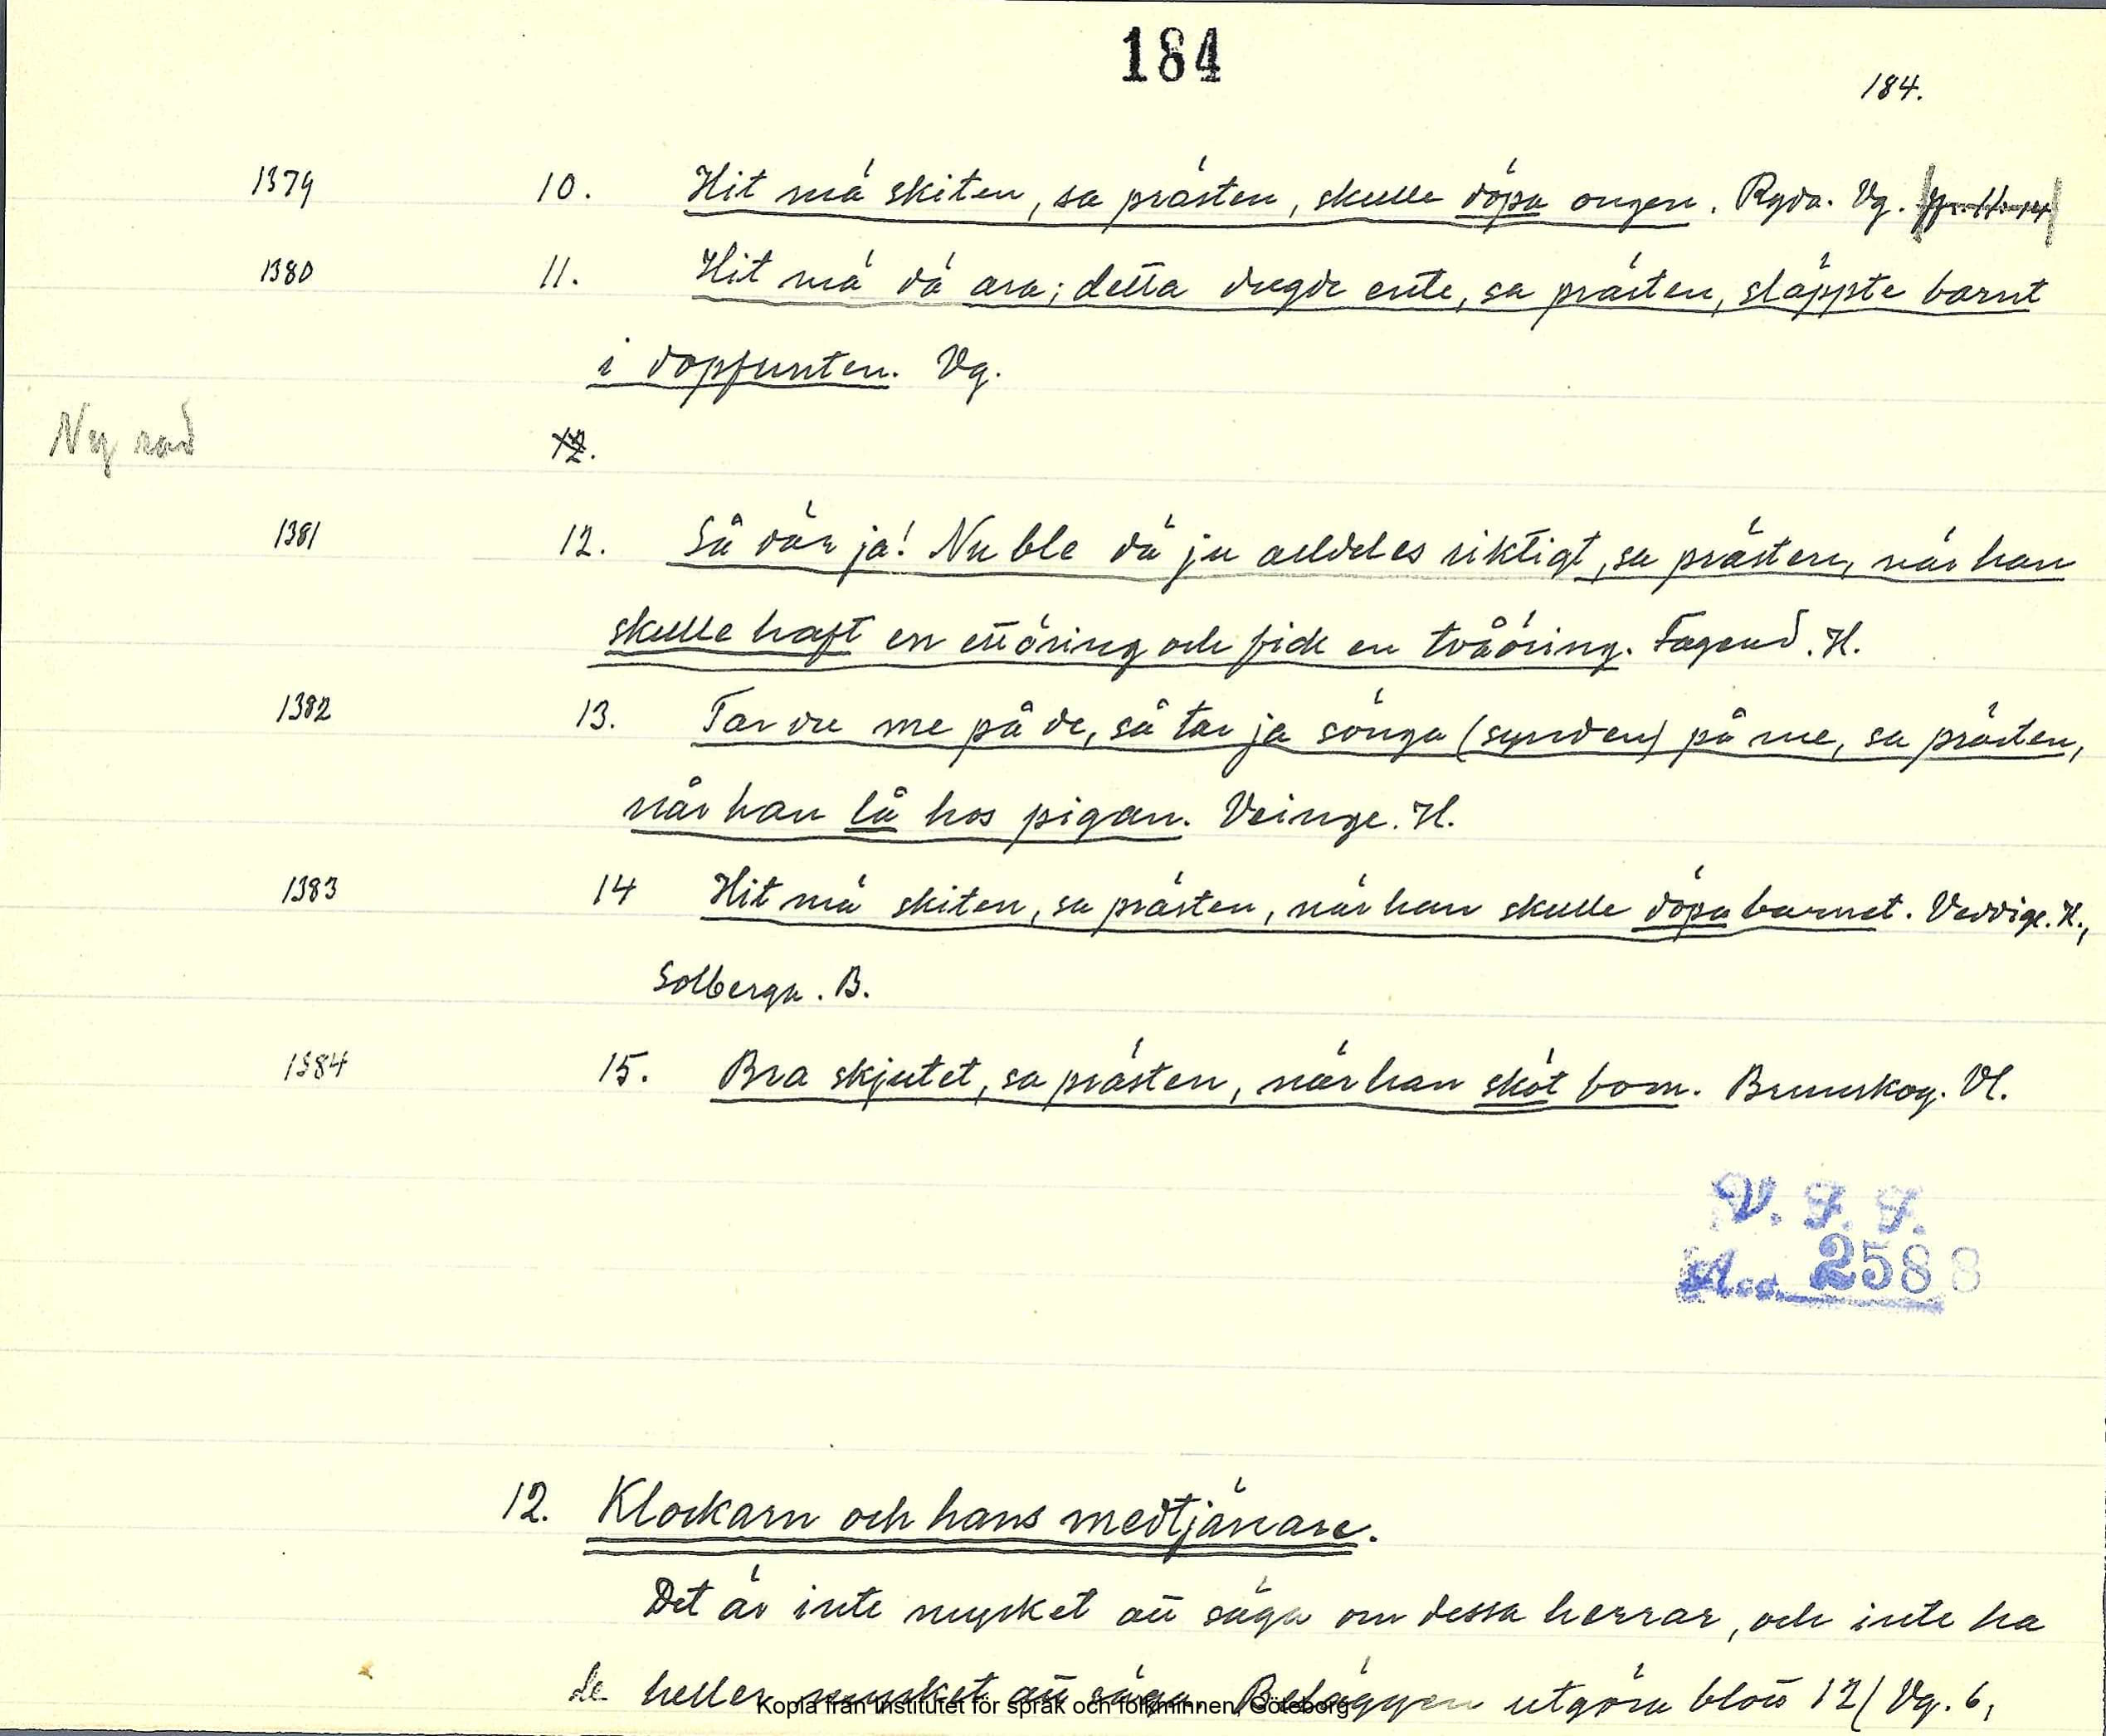 184
184.
1379 10. Hit mä skiten, sa prästen, skulle döpa ongen. Ryda. Vg.
1380 11. Hit mä dä ara; detta dugde ente, sa prästen, släppte barnt
i dopfunten. Vg.
Ny rad 12.
1381 12. Så där ja! Nu ble dä ju alldeles riktigt, sa prästen, när han
skulle haft en ettöring och fick en tvåöring. Fagered. H.
1382 13. Tar du me på de, så tar ja sönga (synden) på me, sa prästen,
när han lå hos pigan. Veinge. H.
1383 14 Hit mä skiten, sa prästen, när han skulle döpa barnet. Veddige. H.,
Solberga. B.
1384 15. Bra skjutet, sa prästen, när han sköt bom. Brunskog. Vl.
V. F. F.
Acc. 2588
12. Klockarn och hans medtjänare.
Det är inte mycket att säga om dessa herrar, och inte ha
de heller mycket att säga. Beläggen utgöra blott 12 (Vg. 6,
Kopia från Institutet för språk och folkminnen, Göteborg